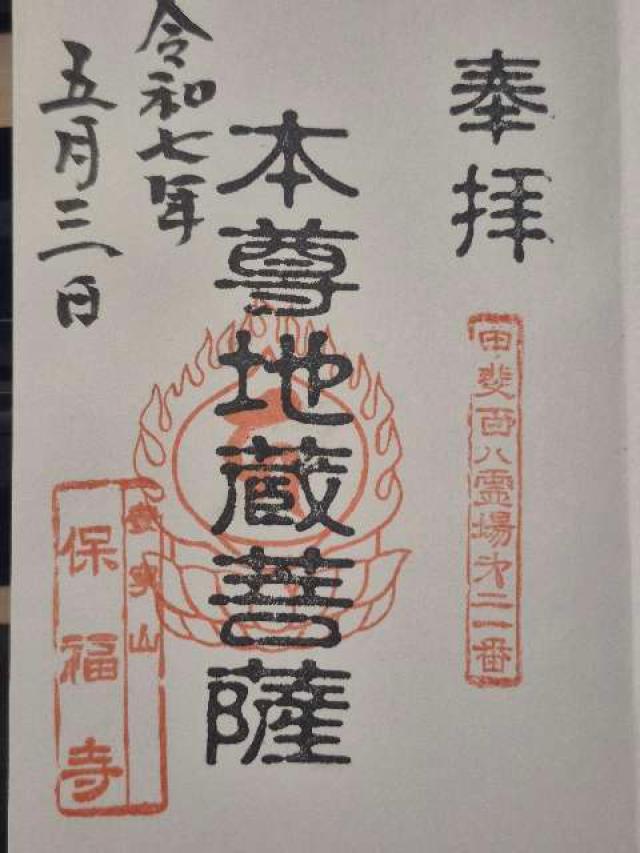 奉拝
甲斐百八霊場第二一番
本尊地蔵菩薩
令和七年
五月三日
山
保福寺